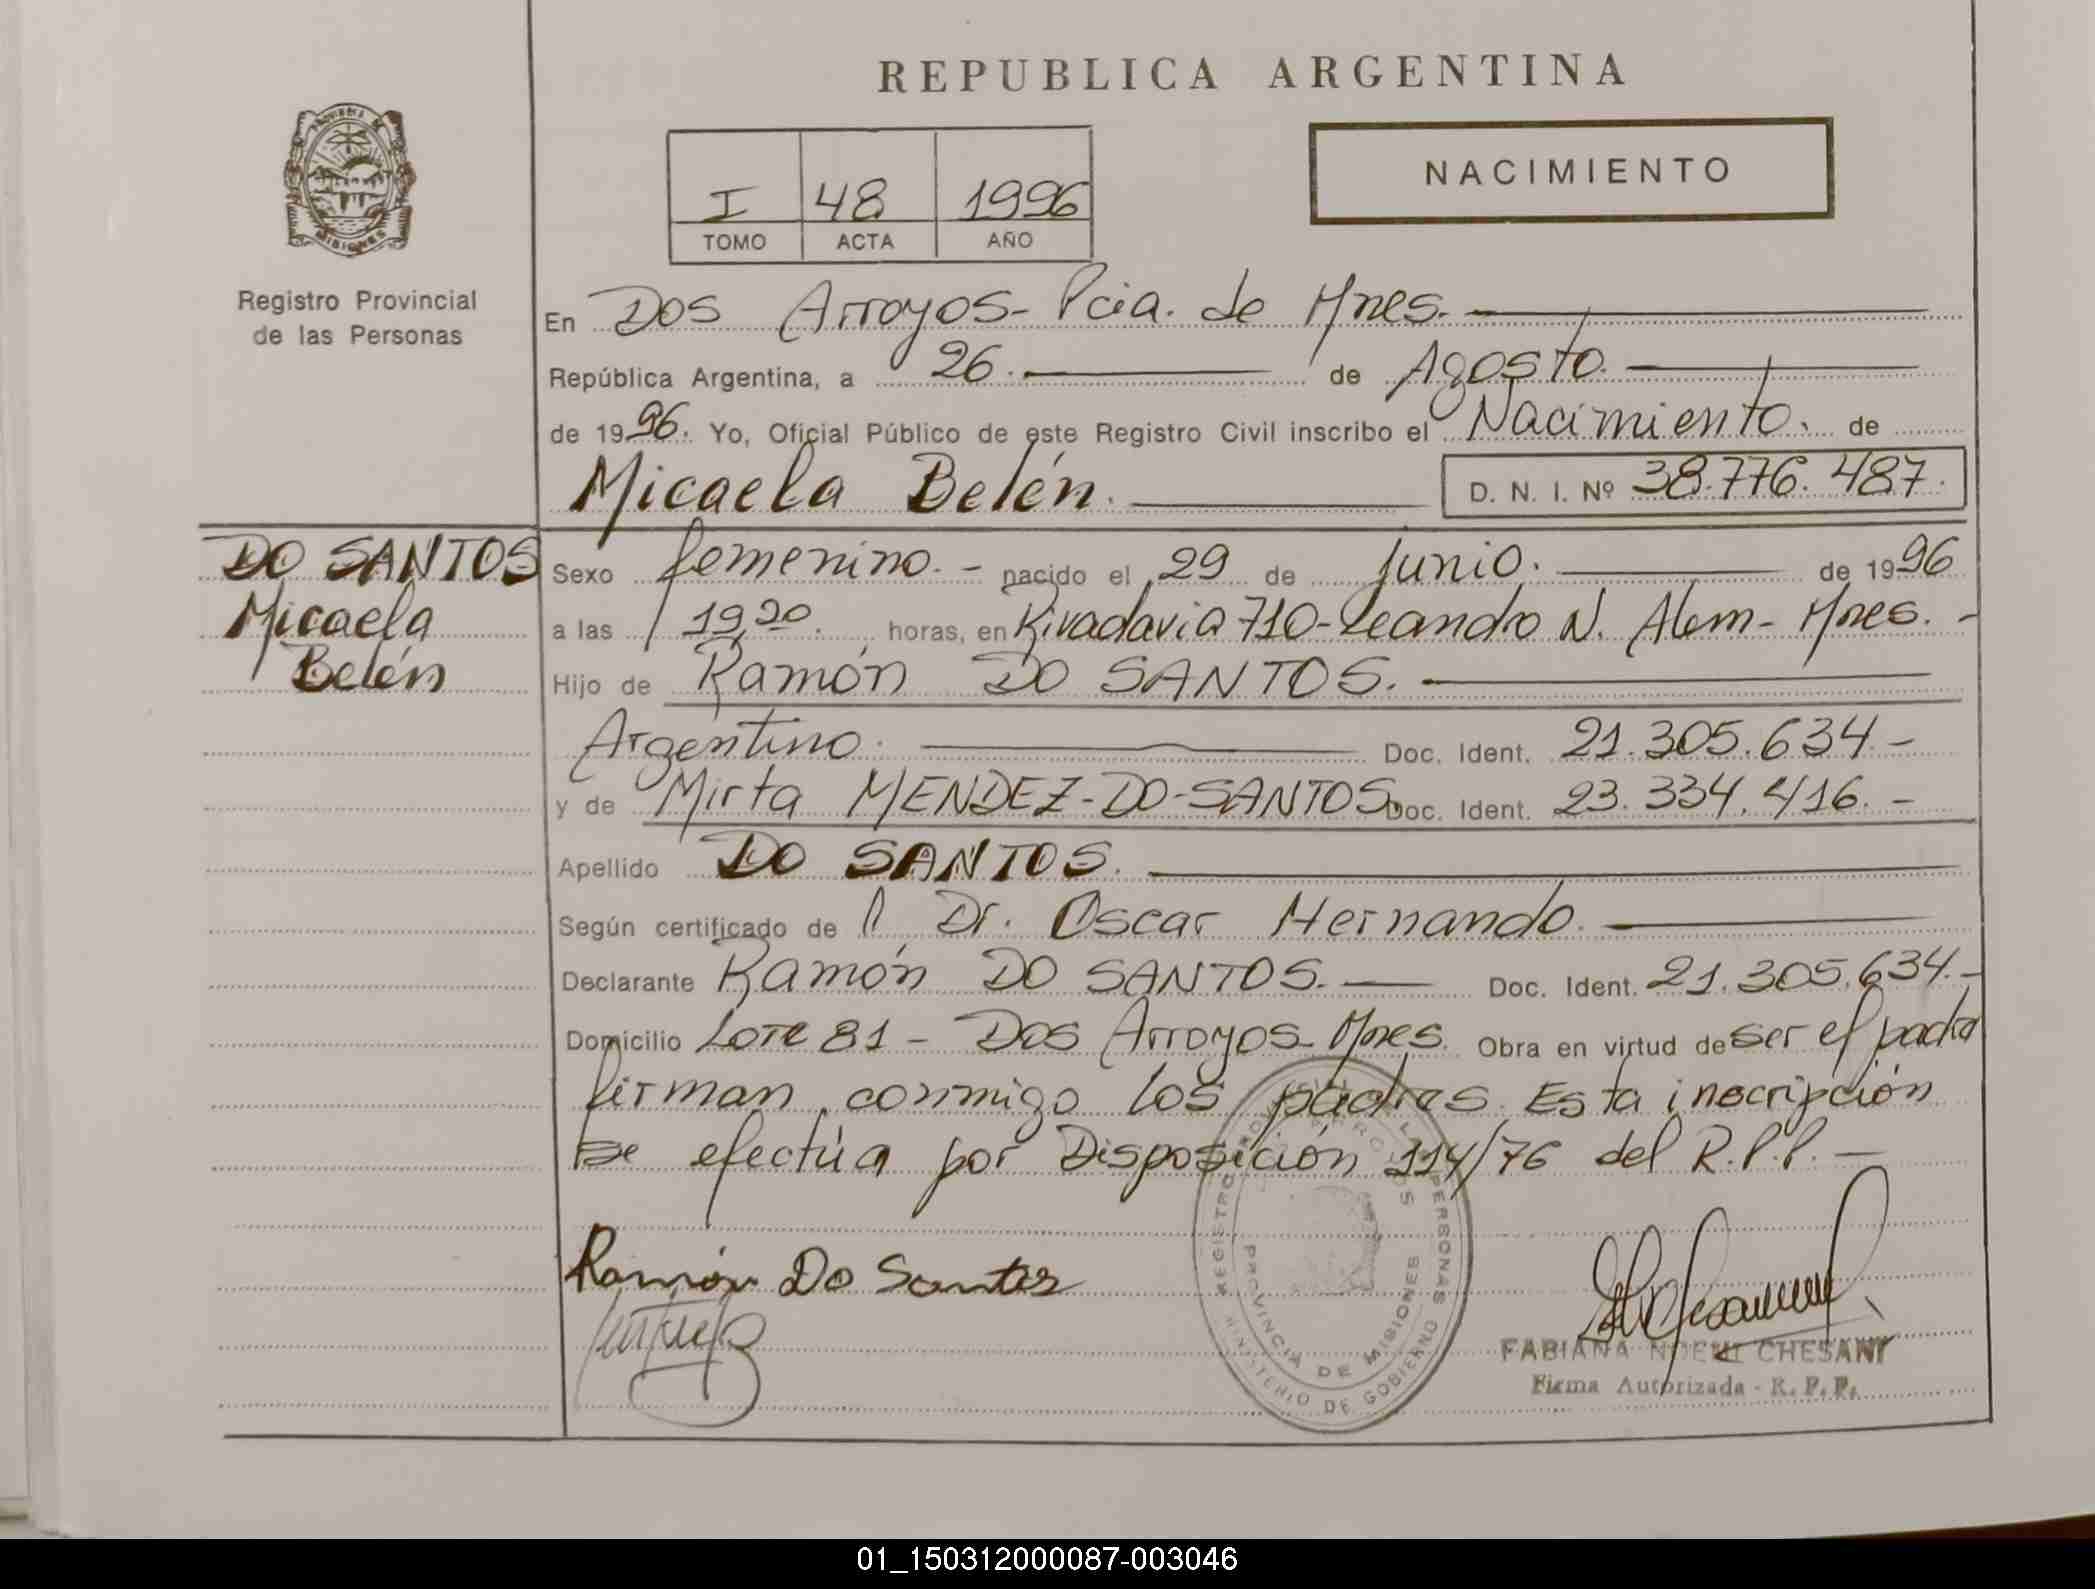 REPUBLICA ARGENTINA
NACIMIENTO
I 48 1996
TOMO ACTA AÑO
Registro Provincial
de las Personas
En Dos Arroyos - Pcia. de Mnes.
República Argentina, a 26. de Agosto.
de 1996. Yo, Oficial Público de este Registro Civil inscribo el Nacimiento. de
Micaela Belén. D. N. I. Nº 38.776.487.
DO SANTOS
Micaela
Belén
Sexo femenino. - nacido el 29 de Junio. de 1996
a las 19,20. horas, en Rivadavia 710 - Leandro N. Alem - Mnes. -
Hijo de Ramón DO SANTOS.
Argentino. Doc. Ident. 21.305.634 -
y de Mirta MENDEZ-DO-SANTOS. Doc. Ident. 23.334.416. -
Apellido DO SANTOS.
Según certificado de Dr. Oscar Hernando.
Declarante Ramón DO SANTOS. Doc. Ident. 21.305.634. -
Domicilio Lote 81 - Dos Arroyos - Mnes. Obra en virtud de ser el padre
firman conmigo los padres. Esta inscripción
se efectúa por Disposición 114/76 del R.P.P. -
Ramón Do Santos
REGISTRO PERSONAS
PROVINCIA DE MISIONES
MINISTERIO DE GOBIERNO
FABIANA NOEMI CHESANI
Firma Autorizada - R. P. P.
01_150312000087-003046